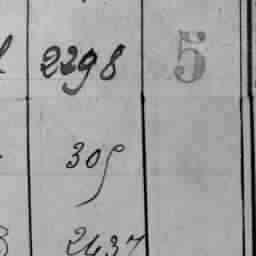 2298 5
305
2437